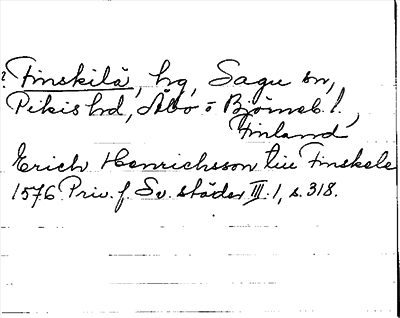 ? Finskilä, hg, Sagu sn,
Pikis hd, Åbo o Björneb. l.,
Finland
Erich Henrichsson till Finskele
1576 Priv. f. Sv. städer III:1, s. 318.